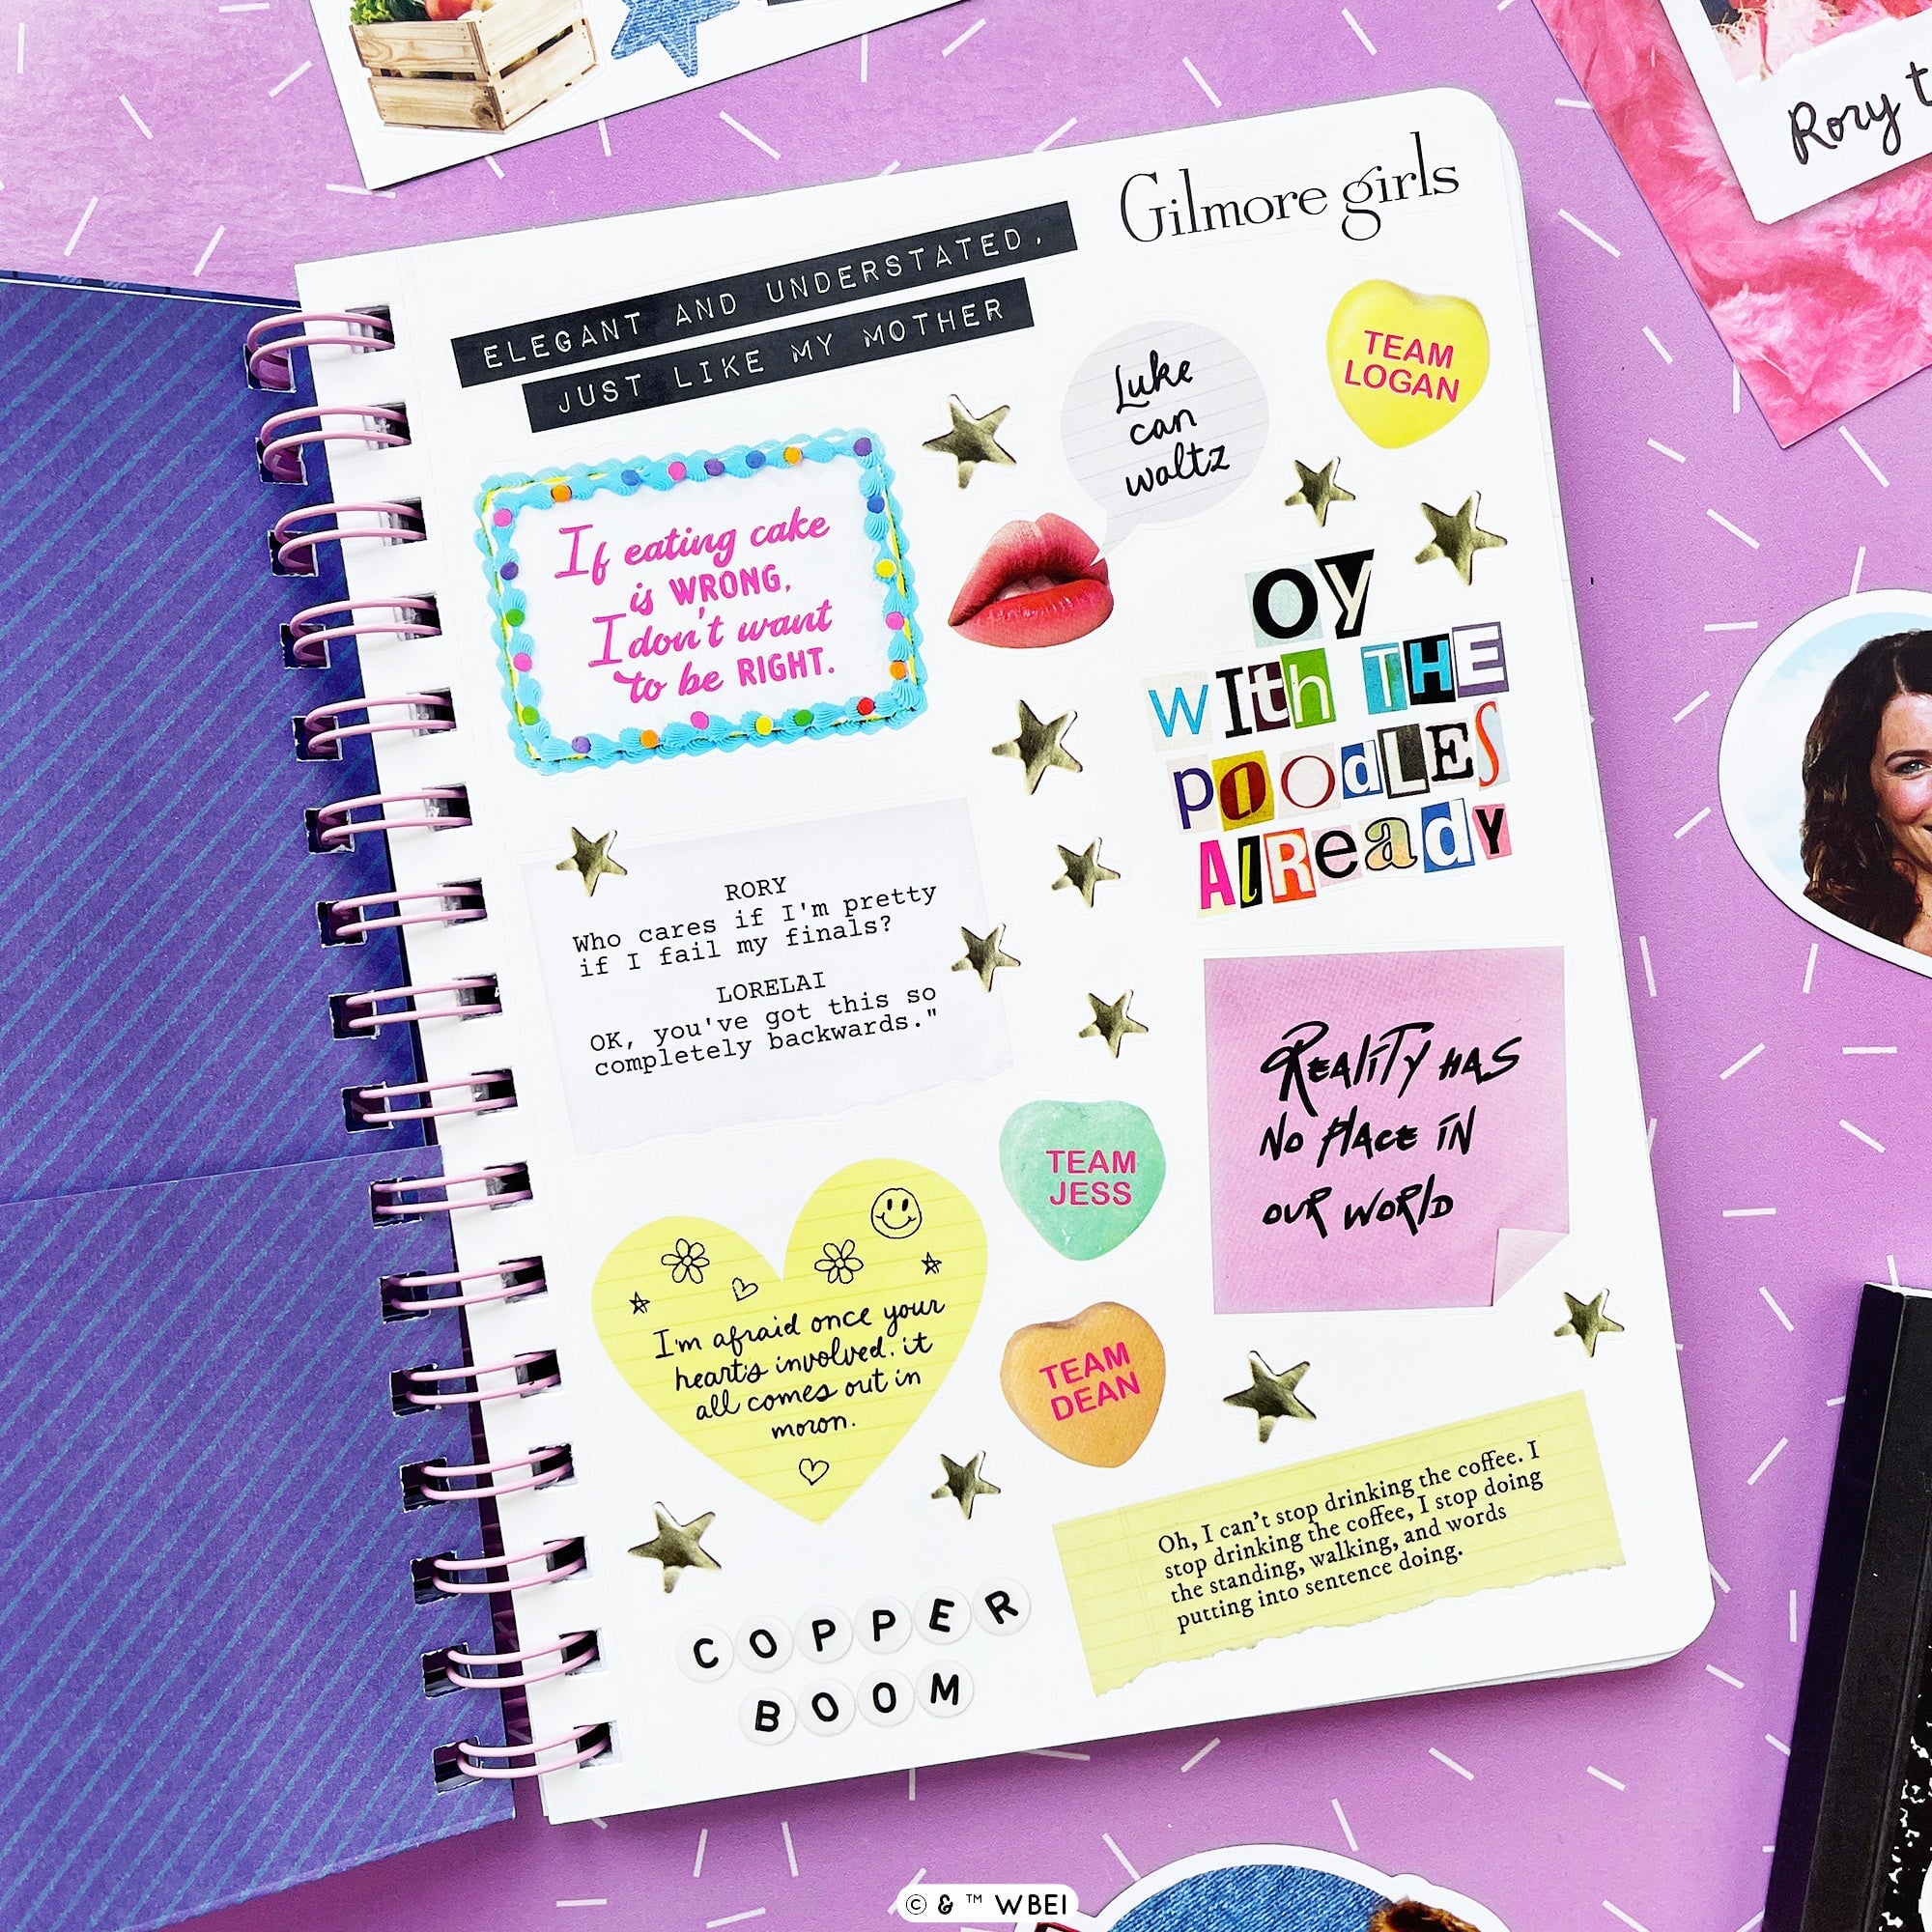 Rory t
Gilmore girls
ELEGANT AND UNDERSTATED,
JUST LIKE MY MOTHER
Luke
can
waltz
TEAM
LOGAN
If eating cake
is WRONG,
I don't want
to be RIGHT.
OY
WIth THE
POOdLES
AlReadY
RORY
Who cares if I'm pretty
if I fail my finals?
LORELAI
OK, you've got this so
completely backwards."
REALITY HAS
NO PLACE IN
OUR WORLD
TEAM
JESS
I'm afraid once your
heart's involved, it
all comes out in
moron.
TEAM
DEAN
Oh, I can't stop drinking the coffee. I
stop drinking the coffee, I stop doing
the standing, walking, and words
putting into sentence doing.
COPPER
BOOM
© & ™ WBEI